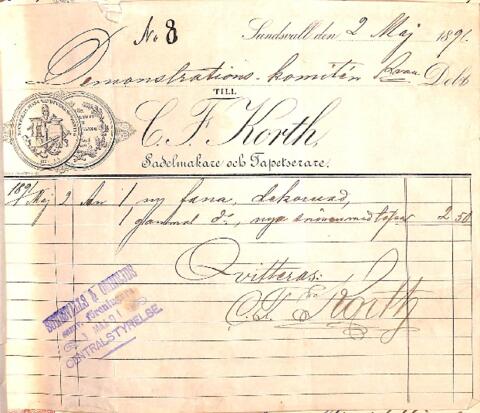 No 8
Sundsvall den 2 Maj 1891.
Demonstrations-komitén Debet
TILL
C. F. Korth,
Sadelmakare och Tapetserare.
1891
Maj 2 An 1 ny fana, dekorerad,
1 gammal do, nya snören med tofsar 2 50
Qvitteras:
C. F. Korth
SUNDSVALLS & OMNEJDS
MAJ 91
CENTRALSTYRELSE.